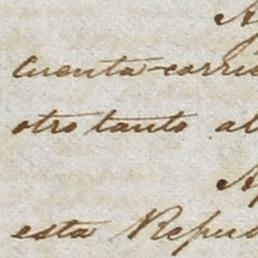 A
cuenta corrie
otro tanto al
Ap
esta Repub